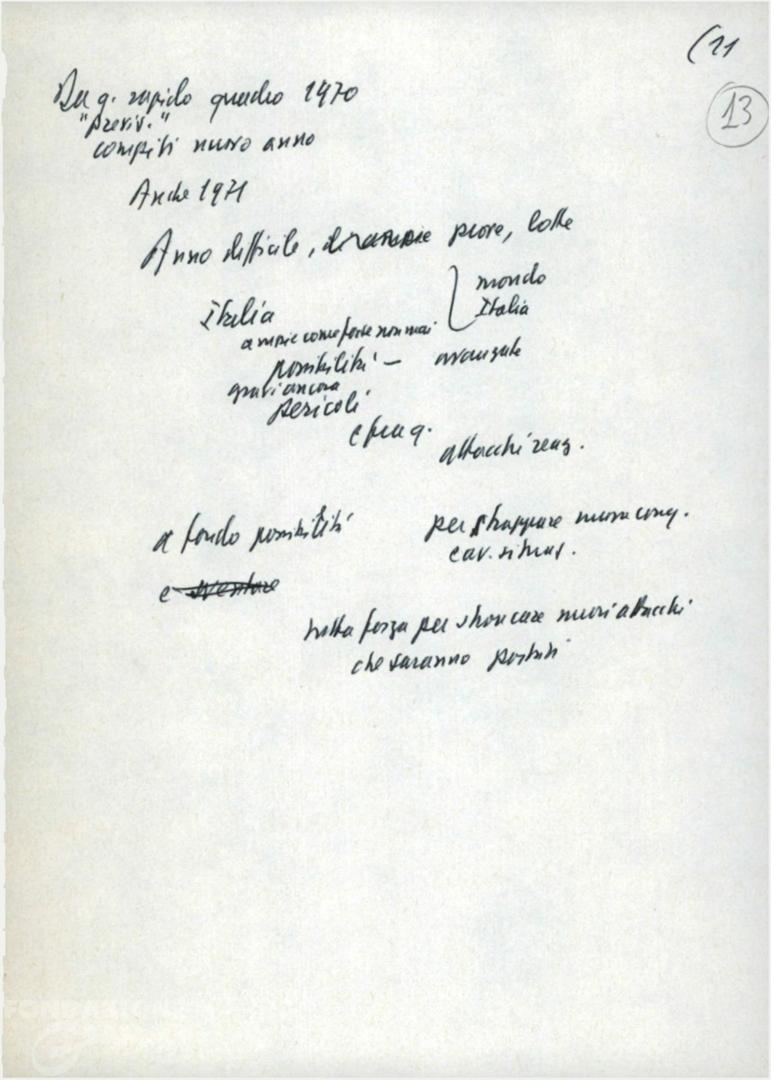 (11
13
Da q. rapido quadro 1970
"previs."
compiti nuovo anno
Anche 1971
Anno difficile, di ampie prove, lotte
mondo
Italia
Italia
ampie come forse non mai
possibilità – avanzate
gravi ancora
pericoli
e fra q.
attacchi reaz.
a fondo possibilità
per strappare nuove conq.
e av. situaz.
e sventare
tutta forza per stroncare nuovi attacchi
che saranno portati